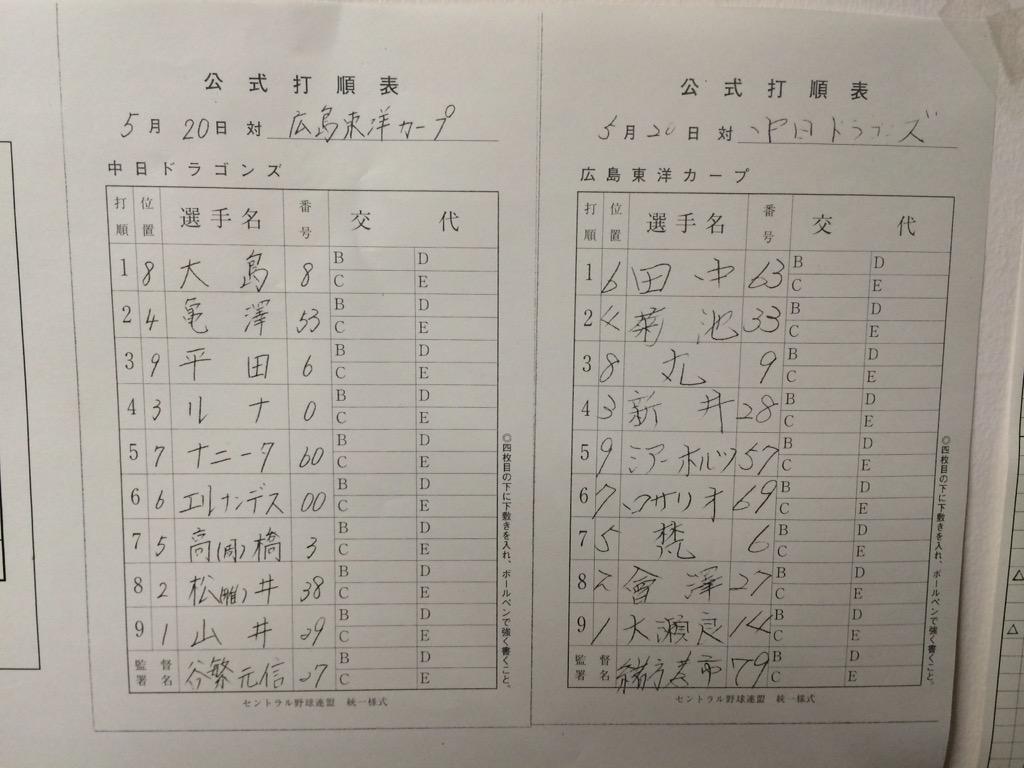 公式打順表
5月 20日 対 広島東洋カープ
中日ドラゴンズ
打順 位置 選手名 番号 交代
1 8 大島 8 B D C E
2 4 亀澤 53 B D C E
3 9 平田 6 B D C E
4 3 ルナ 0 B D C E
5 7 ナニータ 60 B D C E
6 6 エルナンデス 00 B D C E
7 5 高(周)橋 3 B D C E
8 2 松(雅)井 38 B D C E
9 1 山井 29 B D C E
監督署名 谷繁元信 27 B D C E
◎四枚目の下に下敷きを入れ、ボールペンで強く書くこと。
セントラル野球連盟 統一様式
公式打順表
5月 20日 対 中日ドラゴンズ
広島東洋カープ
打順 位置 選手名 番号 交代
1 6 田中 63 B D C E
2 4 菊池 33 B D C E
3 8 丸 9 B D C E
4 3 新井 28 B D C E
5 9 シアーホルツ 57 B D C E
6 7 ロサリオ 69 B D C E
7 5 梵 6 B D C E
8 2 會澤 27 B D C E
9 1 大瀬良 14 B D C E
監督署名 緒方孝市 79 B D C E
◎四枚目の下に下敷きを入れ、ボールペンで強く書くこと。
セントラル野球連盟 統一様式
△
△